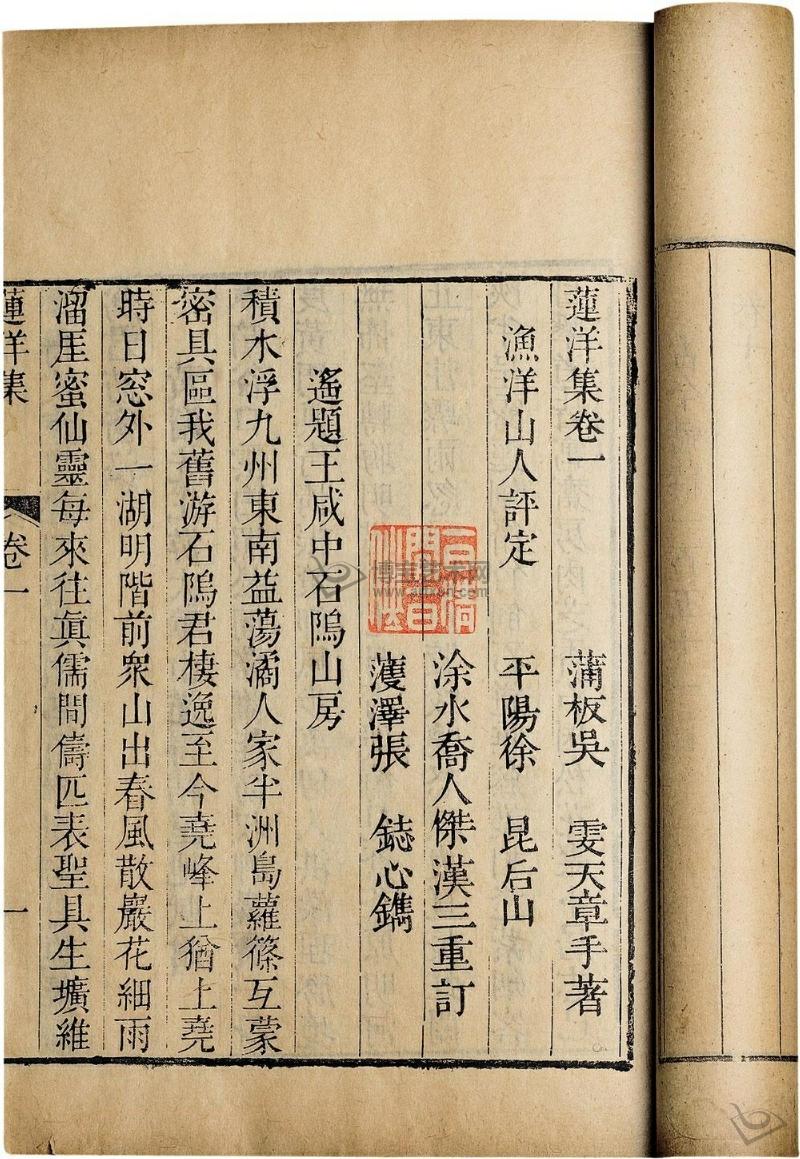 蓮洋集卷一　蒲板吳　雯天章手著
漁洋山人評定　平陽徐　昆后山
涂水喬人傑漢三重訂
濩澤張　鋕心鐫
遙題王咸中石隖山房
積水浮九州東南益蕩潏人家半洲島蘿篠互蒙
密具區我舊游石隖君棲逸至今堯峰上猶上堯
時日窓外一湖明階前衆山出春風散巖花細雨
溜厓蜜仙靈每來往眞儒間儔匹表聖具生壙維
蓮洋集　卷一　一
博宝艺术网